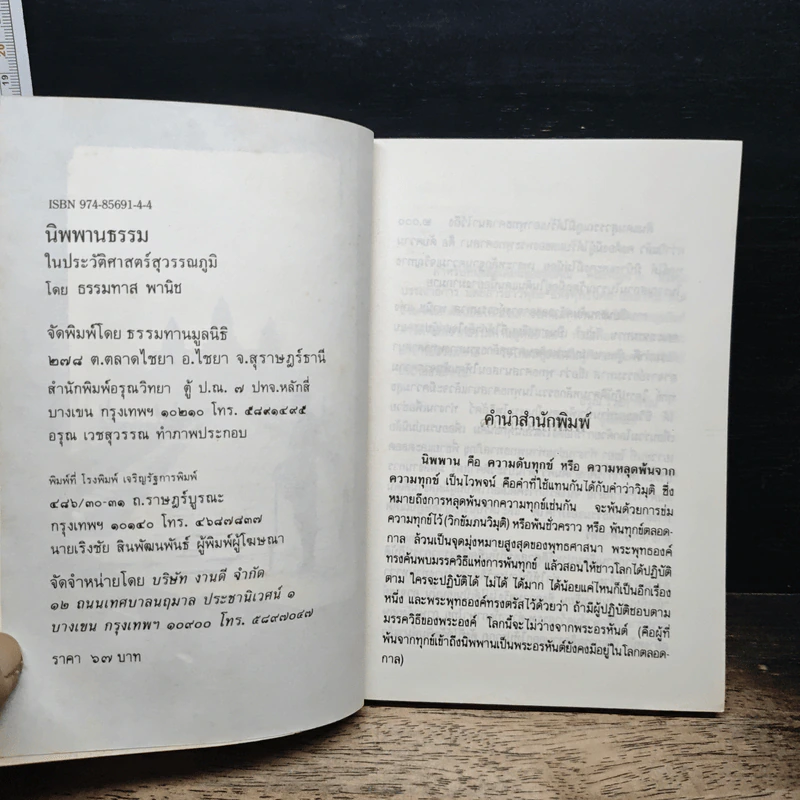 20
19
ISBN 974-85691-4-4
นิพพานธรรม
ในประวัติศาสตร์สุวรรณภูมิ
โดย ธรรมทาส พานิช
จัดพิมพ์โดย ธรรมทานมูลนิธิ
๒๗๘ ต.ตลาดไชยา อ.ไชยา จ.สุราษฎร์ธานี
สำนักพิมพ์อรุณวิทยา ตู้ ป.ณ. ๗ ปทจ.หลักสี่
บางเขน กรุงเทพฯ ๑๐๒๑๐ โทร. ๕๘๙๑๔๙๕
อรุณ เวชสุวรรณ ทำภาพประกอบ
พิมพ์ที่ โรงพิมพ์ เจริญรัฐการพิมพ์
๔๘๖/๓๐-๓๑ ถ.ราษฎร์บูรณะ
กรุงเทพฯ ๑๐๑๔๐ โทร. ๔๖๘๗๘๓๗
นายเริงชัย สินพัฒนพันธ์ ผู้พิมพ์ผู้โฆษณา
จัดจำหน่ายโดย บริษัท งานดี จำกัด
๑๒ ถนนเทศบาลนฤมาล ประชานิเวศน์ ๑
บางเขน กรุงเทพฯ ๑๐๙๐๐ โทร. ๕๘๙๗๐๔๗
ราคา ๖๗ บาท
คำนำสำนักพิมพ์
นิพพาน คือ ความดับทุกข์ หรือ ความหลุดพ้นจาก
ความทุกข์ เป็นไวพจน์ คือคำที่ใช้แทนกันได้กับคำว่าวิมุติ ซึ่ง
หมายถึงการหลุดพ้นจากความทุกข์เช่นกัน จะพ้นด้วยการข่ม
ความทุกข์ไว้(วิกขัมภนวิมุติ) หรือพ้นชั่วคราว หรือ พ้นทุกข์ตลอด-
กาล ล้วนเป็นจุดมุ่งหมายสูงสุดของพุทธศาสนา พระพุทธองค์
ทรงค้นพบมรรควิธีแห่งการพ้นทุกข์ แล้วสอนให้ชาวโลกได้ปฏิบัติ
ตาม ใครจะปฏิบัติได้ ไม่ได้ ได้มาก ได้น้อยแค่ไหนก็เป็นอีกเรื่อง
หนึ่ง และพระพุทธองค์ทรงตรัสไว้ด้วยว่า ถ้ามีผู้ปฏิบัติชอบตาม
มรรควิธีของพระองค์ โลกนี้จะไม่ว่างจากพระอรหันต์ (คือผู้ที่
พ้นจากทุกข์เข้าถึงนิพพานเป็นพระอรหันต์ยังคงมีอยู่ในโลกตลอด-
กาล)